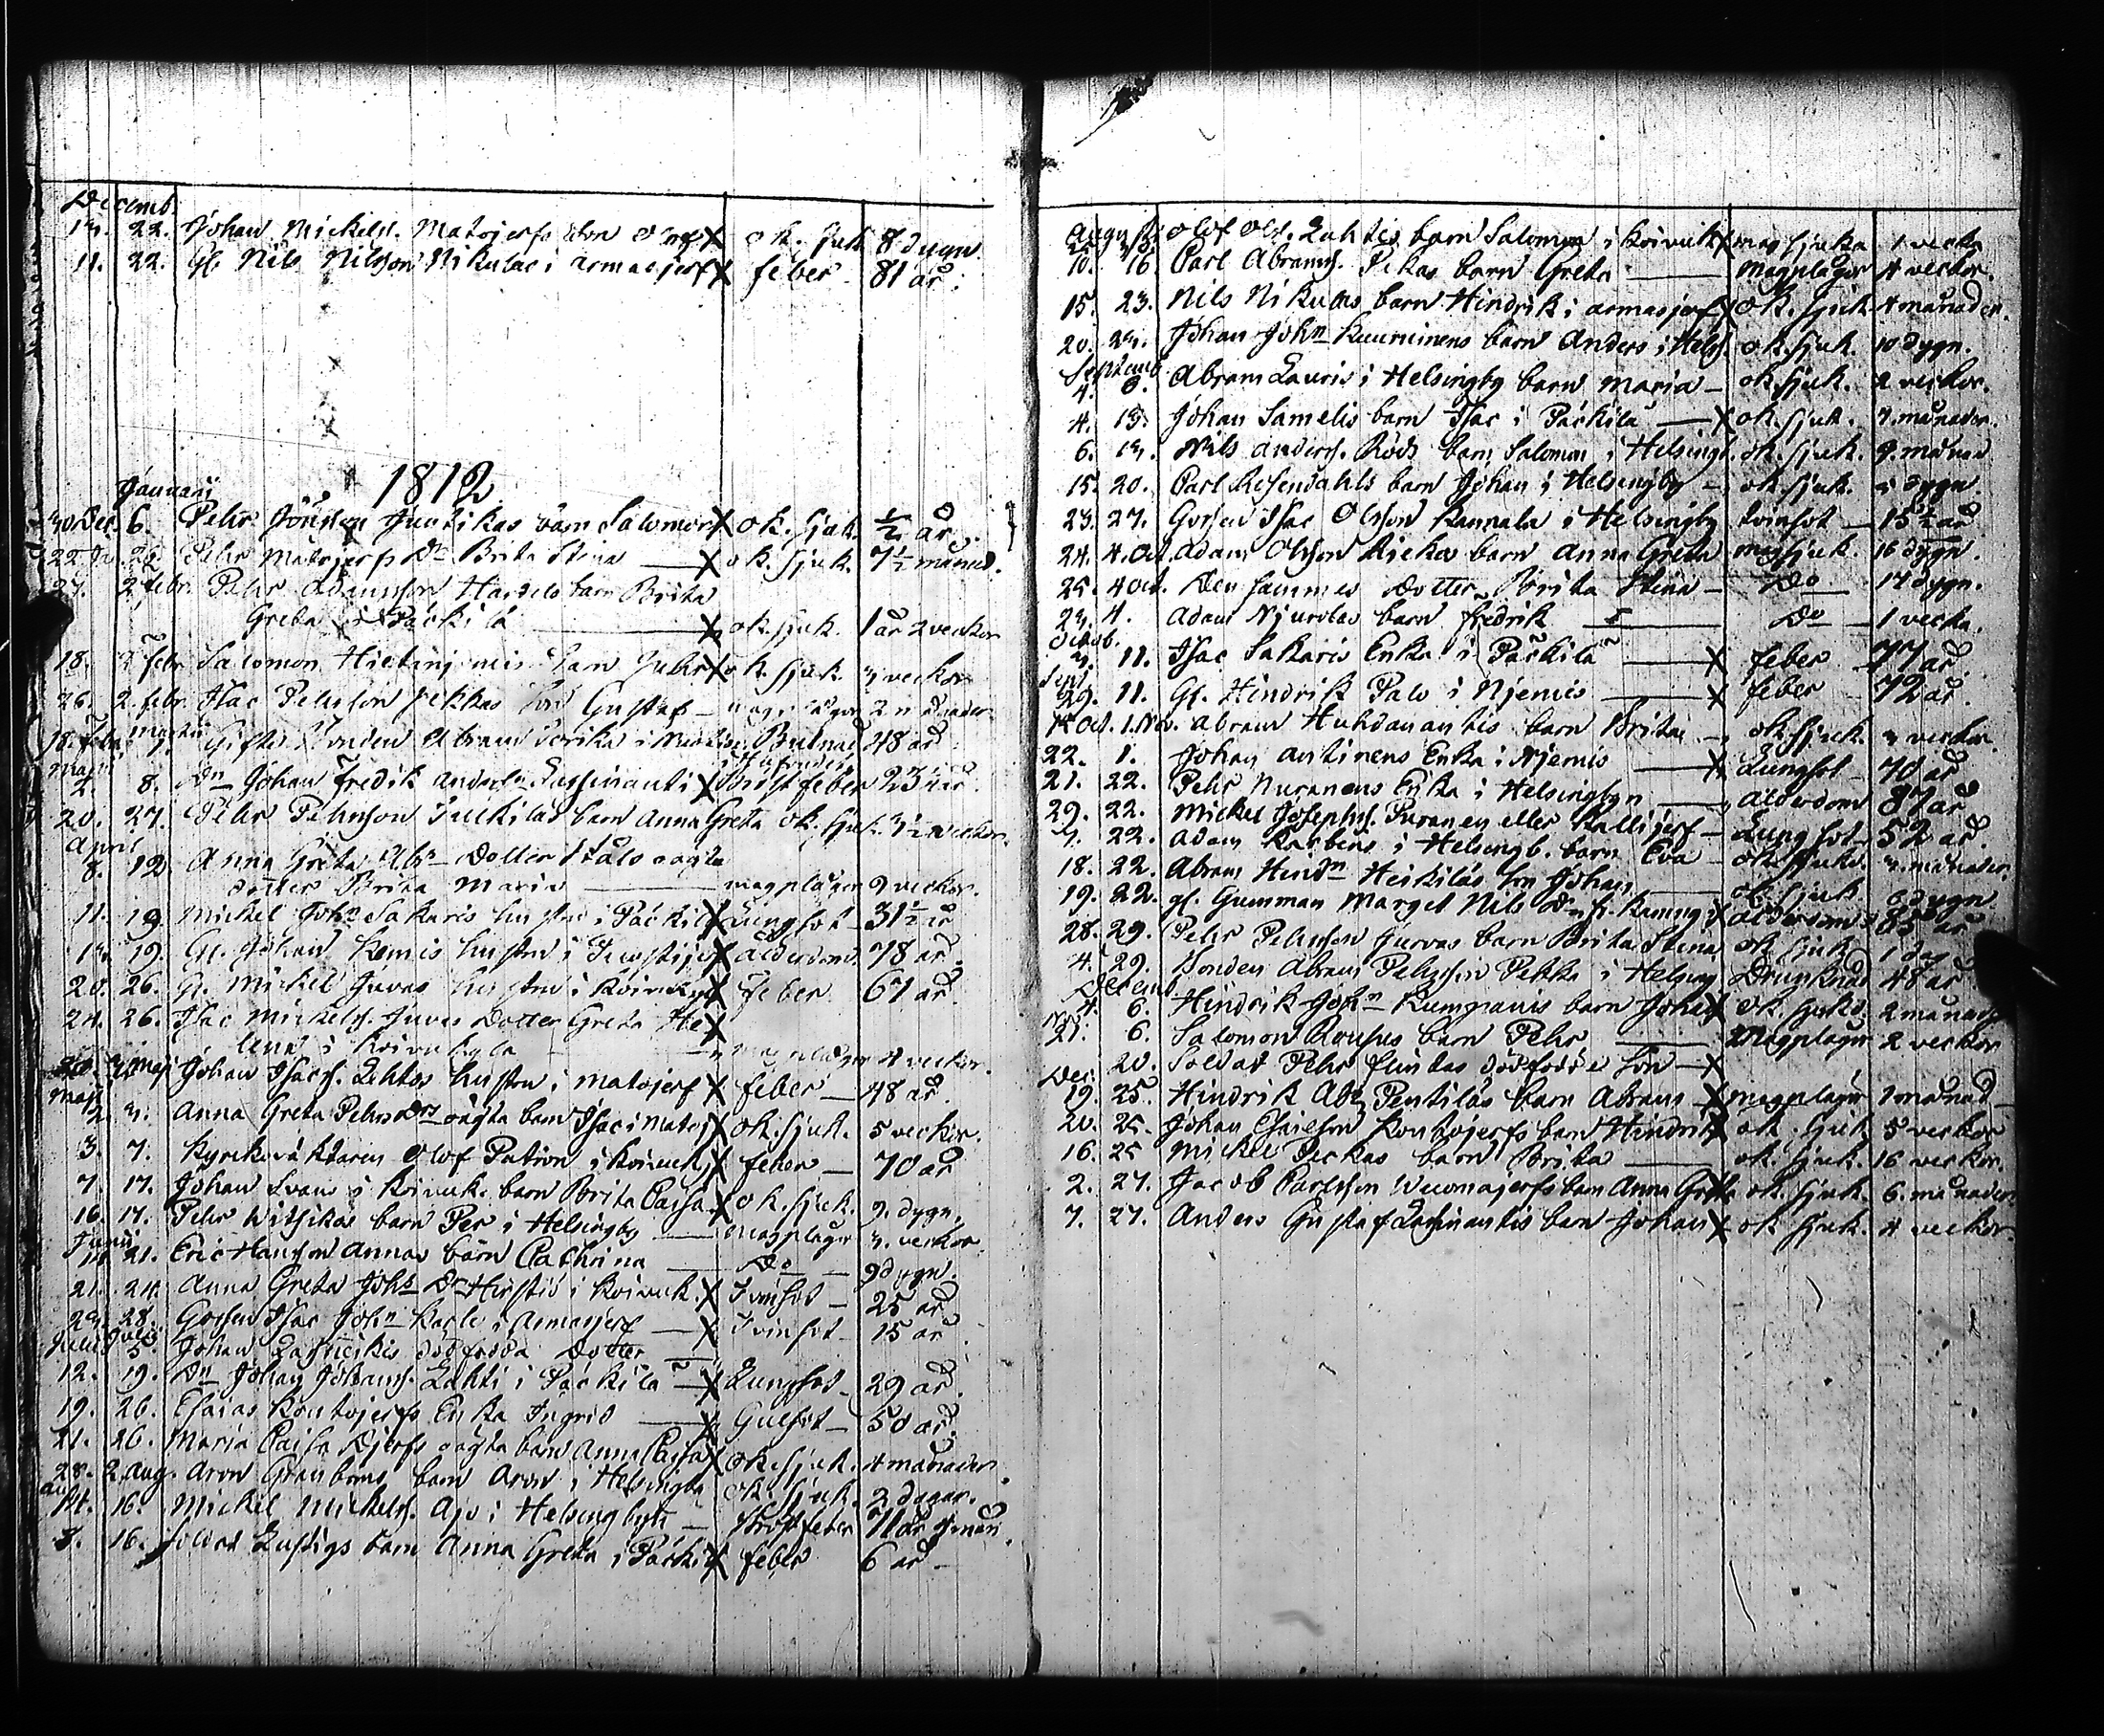 Decemb.
13. 22. Johan Mickels. Matojerfs X ok. sjuk. 8 dygn
11. 22. Gl. Nils Nilsson Nikulas i armasjerf X feber 81 år.
1812
Januarii
30 Dec. 6. Pehr Juntikas barn Salomon X ok. sjuk. ½ år.
22 22 Pehr Matojerfs Dr Brita Stina X ok. sjuk. 7½ månad.
27. 2 febr. Pehr Adamsson barn Brita
Greta i Päckilä X ok. sjuk. 1 år 2 veckor
18. 2 febr. Salomon Hietanjemis barn X ok. sjuk. 3 veckor
26. 2. febr. Isac Pehrsson Pekkas Son Gustaf
18. Febr. Martii 1. Gifte Bonden Abram i 48 år
Martii 2. 8. Dn Johan Fredrik Anders. X Bröstfeber 23½ år.
20. 27. Pehr Pehrsson barn Anna Greta ok. sjuk. 3½ veckor.
April
8. 12 Anna Greta Abr. Dotter Ståls oägta
dotter Brita Maria magplågor 9 veckor.
11. 19 Mickel Johs Sakaris hustru i Päckil X Lungsot 31½ år
13. 19. Gl. Johan Kemis hustru i X ålderdom. 78 år.
20. 26. Gl. Mickel Juvas hustru i Koivuk X feber 67 år.
24. 26. Isac Mickels. Juvas Dotter Greta He X
lena i Koivukyla magplågor 4 veckor.
3 Maj Johan Isacs. Lehtos hustru i Matojerf X feber 48 år.
Maji
2 3. Anna Greta Pehrs Drs oägta barn Isac i Matoj X ok. sjuk. 5 veckor.
3. 7. Kyrkoväktaren Olof Patron i Koivuk X feber 70 år
7. 17. Johan Svans i Koivuk. barn Brita Caisa X ok. sjuk. 9. dygn.
16. 17. Pehr Witsikas barn Per i Helsingby magplågor 3. veckor
Junii
14 21. Eric Hansson Annas barn Cathrina Do 9 dygn.
21. 24. Anna Greta Johs Dr i Koivuk. X Tvinsot 25 år
23. 28. Gossen Isac John Karle i Armasjerf X Tvinsot 15 år
Julii 5. Johan dödfödda Dotter
12. 19. Dn Johan Johans. Lahti i Päckilä X Lungsot 29 år.
19. 26. Esaias Kontojerfs Enka Ingrid X Gulsot 50 år.
21. 26. Maria Caisa Djerfs oägta barn Anna Caisa X ok. sjuk. 4 månader.
28. 2 Aug. Aron Granboms barn Aron i Helsingby ok. sjuk. 2 dagar.
Aug
14. 16. Mickel Mickels. Ajo i Helsingbyn Bröstfeber 71 år 9 mån
8. 16. Soldat Lustigs barn Anna Greta i Päcki X feber 6 år
Augusti Olof Ols. Lahtis barn Salomon i Koivuk X magsjuka 1 vecka
10. 16 Carl Abrams. Pekas barn Greta magplågor 4 veckor.
15. 23. Nils Nikulas barn Hindrik i armasjerf X ok. sjuk. 4 månader.
20. 23. Johan John barn Anders i Hels. ok. sjuk. 10 dygn.
Septemb
4. 6. Abram Lauris i Helsingby barn Maria ok. sjuk. 2 veckor.
4. 13. Johan Samelis barn Isac i Päckilä X ok. sjuk. 7. månader.
6. 13. Nils Anders. Röds barn Salomon i Helsingb. ok. sjuk. 9. månad
15. 20. Carl Rosendahls barn Johan i Helsingby ok. sjuk. 5 dygn.
23. 27. Gossen Isac Olsson Kannala i Helsingby tvinsot 15½ år
24. 4. Oct. Adam Olsson Riekas barn Anna Greta magsjuk. 16 dygn.
25. 4 Oct. Den sammes dotter Brita Stina Do 17 dygn.
23. 4. Adam Njurolas barn Fredrik Do 1 vecka.
Octob.
3. 11. Isac Sakaris Enka i Päckilä X feber 77 år
Sep
29. 11. Gl. Hindrik Palo i Njemis X feber 72 år.
1 Oct. 1. Nov. Abram Huhdanantis barn Brita ok sjuk 3 veckor.
22. 1. Johan Antinens Enka i Njemis X Lungsot 70 år
21. 22. Pehr Nuranens Enka i Helsingbyn ålderdom 87 år
29. 22. Mickel Josephs. Puranen eller Kallijerf Lungsot 52 år.
7. 22. Adam i Helsingb. barn Eva ok sjukd. 3. månader.
18. 22. Abram Hindn Heikiläs son Johan ok sjuk 6 dygn
19. 22. gl. Gumman Marget Nils Dr X ålderdom 85 år
28. 29. Pehr Pehrsson Jurvas barn Brita Stina ok sjuk 1 dag
4. 29. Bonden Abram Pehrsson Pekka i Helsing Drunknad 48 år
Decemb
4. 6. Hindrik John barn Johan X ok. sjukd. 2 månader
Nov
21. 6. Salomon Rousus barn Pehr Magplågor 2 veckor
20. Soldat Pehr Flinkas dödfödde son X
Dec.
19. 25. Hindrik Abr. Pentiläs barn Abram X magplågor 1 månad
20. 25. Johan Esaiesson Kontojerfs barn Hindrik X ok. sjuk 5 veckor
16. 25 Mickel Pekkas barn Brita ok. sjuk. 16 veckor.
2. 27. Jacob Carlsson barn Anna Greta ok. sjuk. 6. månader
7. 27. Anders Gustaf barn Johan X ok sjuk. 4 veckor.